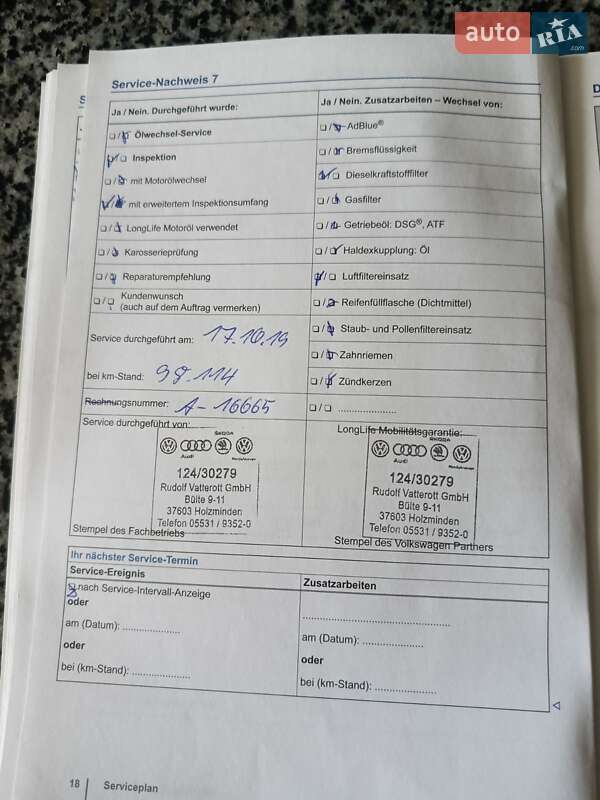 auto RIA.com
Service-Nachweis 7
Ja / Nein. Durchgeführt wurde:
Ölwechsel-Service
Inspektion
mit Motorölwechsel
mit erweitertem Inspektionsumfang
LongLife Motoröl verwendet
Karosserieprüfung
Reparaturempfehlung
Kundenwunsch
(auch auf dem Auftrag vermerken)
Service durchgeführt am: 17.10.19
bei km-Stand: 98.114
Rechnungsnummer: A-16665
Service durchgeführt von:
SKODA
Audi
124/30279
Rudolf Vatterott GmbH
Bülte 9-11
37603 Holzminden
Telefon 05531 / 9352-0
Stempel des Fachbetriebs
Ja / Nein. Zusatzarbeiten – Wechsel von:
AdBlue®
Bremsflüssigkeit
Dieselkraftstofffilter
Gasfilter
Getriebeöl: DSG®, ATF
Haldexkupplung: Öl
Luftfiltereinsatz
Reifenfüllflasche (Dichtmittel)
Staub- und Pollenfiltereinsatz
Zahnriemen
Zündkerzen
LongLife Mobilitätsgarantie:
SKODA
Audi
124/30279
Rudolf Vatterott GmbH
Bülte 9-11
37603 Holzminden
Telefon 05531 / 9352-0
Stempel des Volkswagen Partners
Ihr nächster Service-Termin
Service-Ereignis
nach Service-Intervall-Anzeige
oder
am (Datum): ....................
oder
bei (km-Stand): ....................
Zusatzarbeiten
am (Datum): ....................
oder
bei (km-Stand): ....................
18 Serviceplan